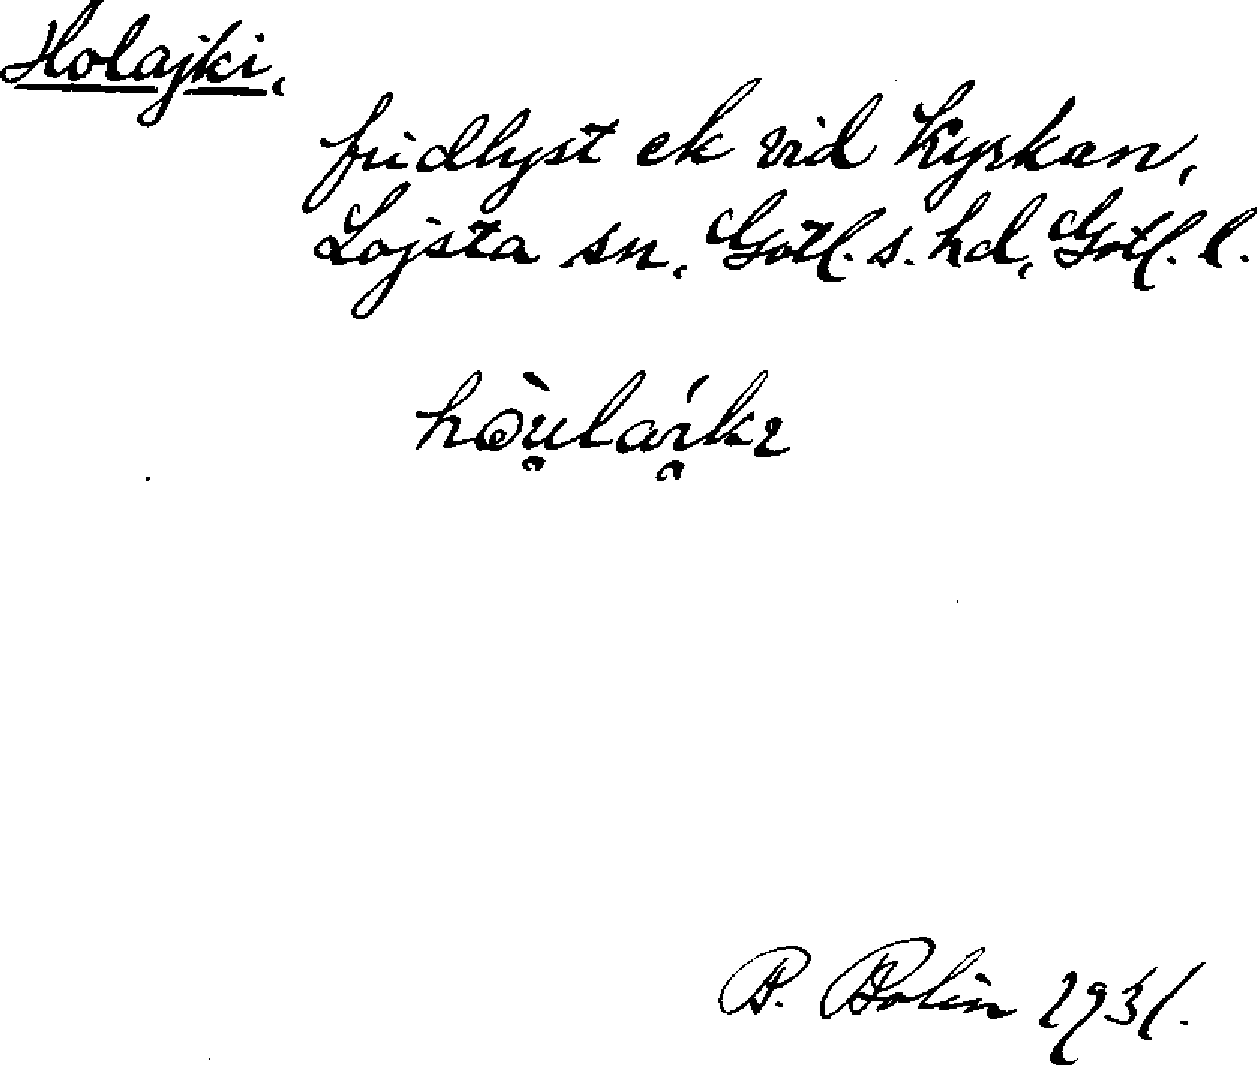 Holajki.
fridlyst ek vid kyrkan,
Lojsta sn, Gotl. s. hd, Gotl. l.
P. Bolin 1931.